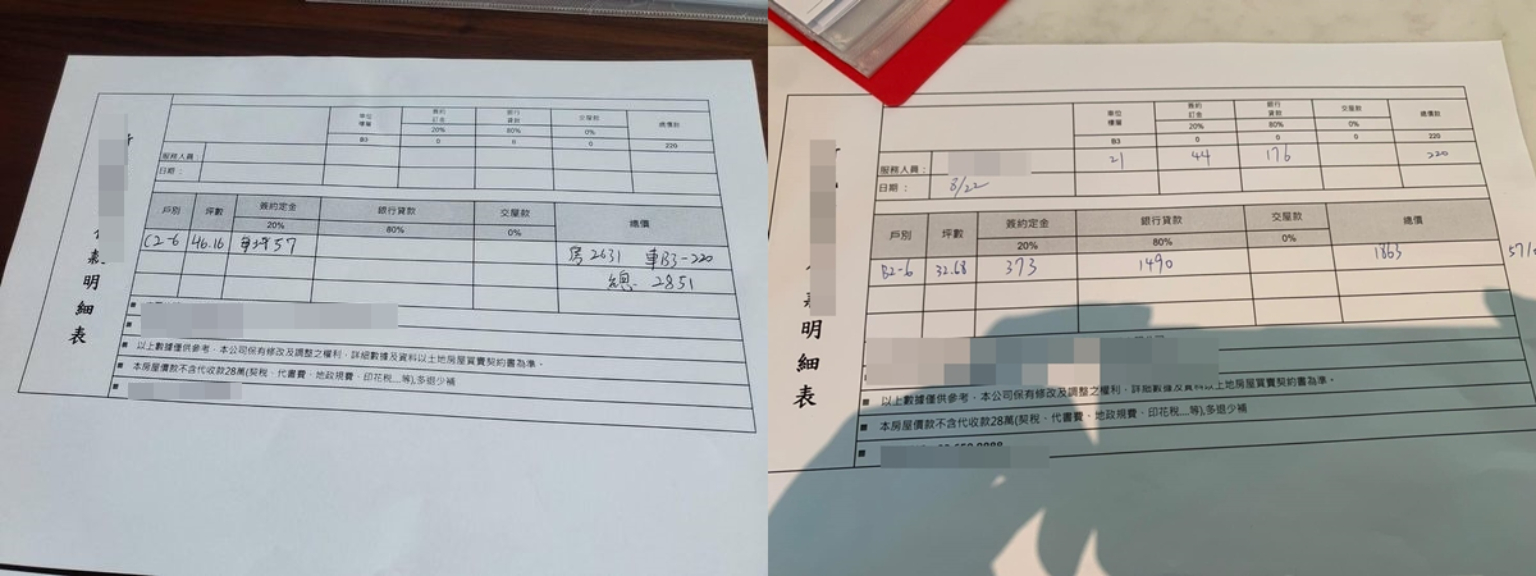 單位樓層 簽約訂金 銀行貸款 交屋款 總價款
20% 80% 0%
B3 0 0 0 220
服務人員：
日期：
戶別 坪數 簽約定金 銀行貸款 交屋款 總價
20% 80% 0%
C2-6 46.16 單坪57 房2631 車B3-220
總 2851
明細表
■ 以上數據僅供參考，本公司保有修改及調整之權利，詳細數據及資料以土地房屋買賣契約書為準。
■ 本房屋價款不含代收款28萬(契稅、代書費、地政規費、印花稅....等),多退少補
單位樓層 簽約訂金 銀行貸款 交屋款 總價款
20% 80% 0%
B3 0 0 0 220
服務人員： 21 44 176 220
日期： 8/22
戶別 坪數 簽約定金 銀行貸款 交屋款 總價
20% 80% 0%
B2-6 32.68 373 1490 1863
明細表
■ 以上數據僅供參考，本公司保有修改及調整之權利，詳細數據及資料以土地房屋買賣契約書為準。
■ 本房屋價款不含代收款28萬(契稅、代書費、地政規費、印花稅....等),多退少補